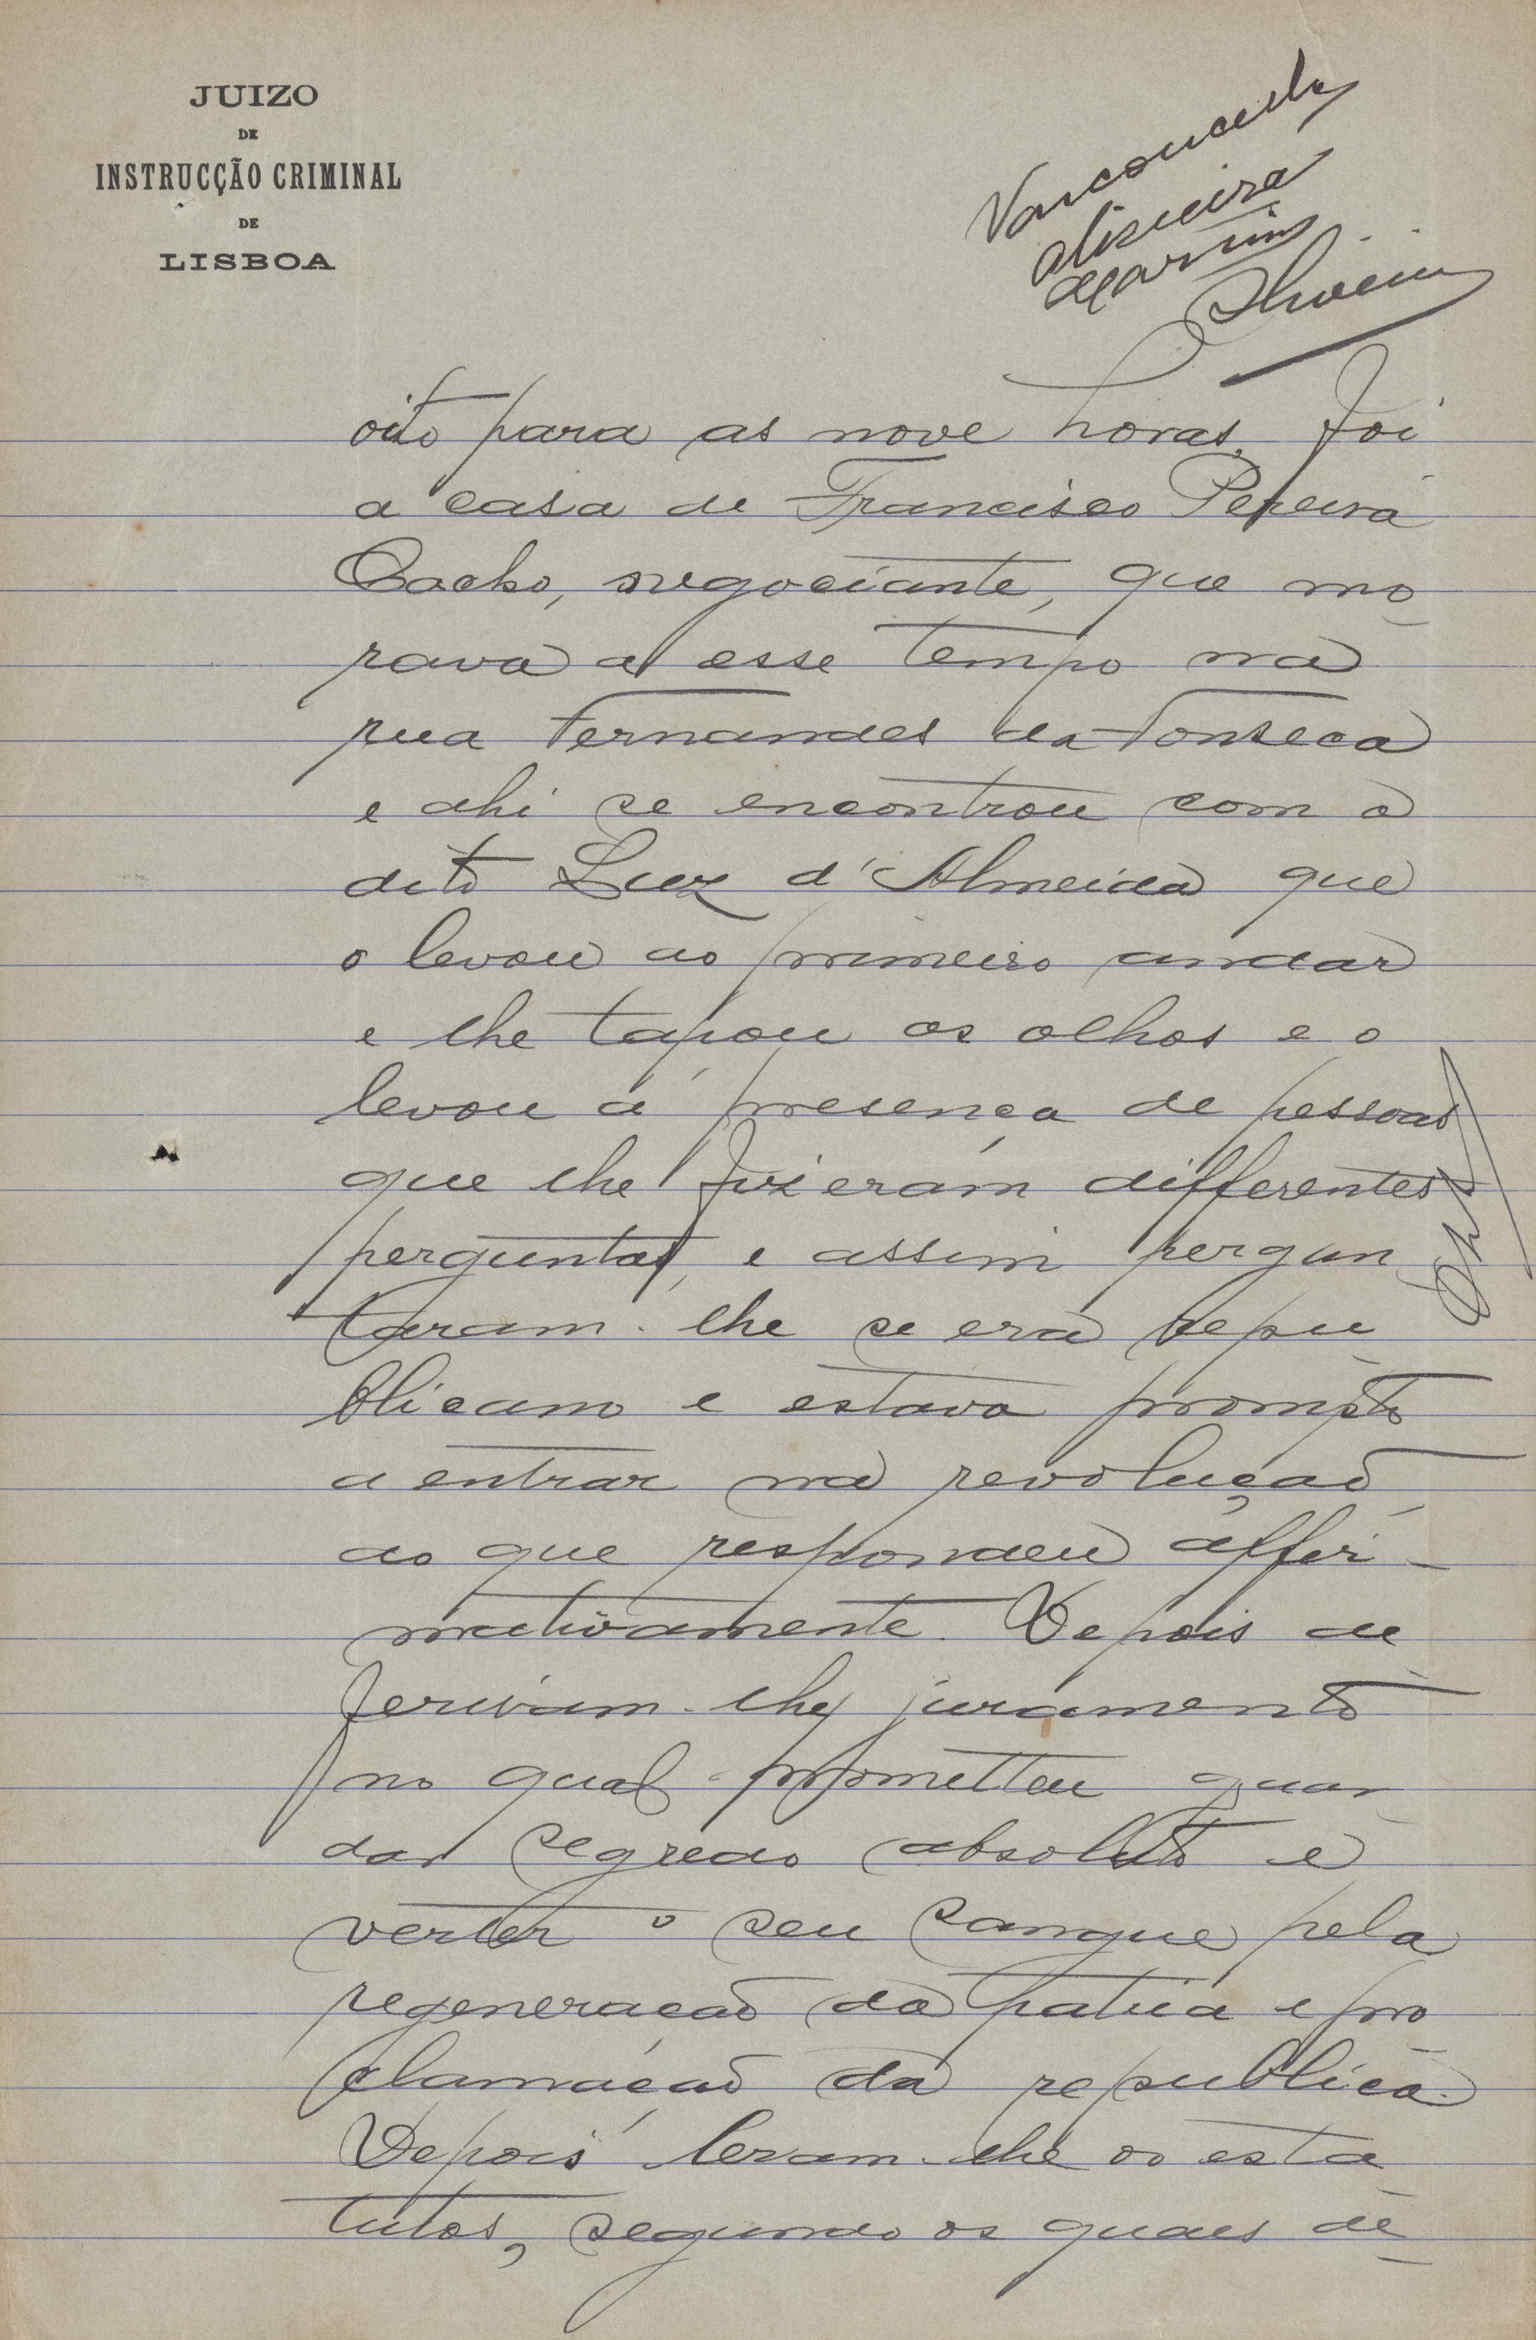 JUIZO
DE
INSTRUCÇÃO CRIMINAL
DE
LISBOA
Vasconcellos
Oliveira
oito para as nove horas, foi
a casa de Francisco Pereira
negociante, que mo
rava a esse tempo na
rua Fernandes da Fonseca
e ahi se encontrou com o
dito Luz d'Almeida que
o levou ao primeiro andar
e lhe tapou os olhos e o
levou á presença de pessoas
que lhe fizeram differentes
perguntas, e assim pergun
taram-lhe se era repu
blicano e estava prompto
a entrar na revolução,
ao que respondeu affir-
mativamente. Depois de
feriram-lhe juramento
no qual prometteu guar
dar segredo absoluto e
verter o seu sangue pela
regeneração da patria e pro
clamação da republica.
Depois leram-lhe os esta
tutos, segundo os quaes de